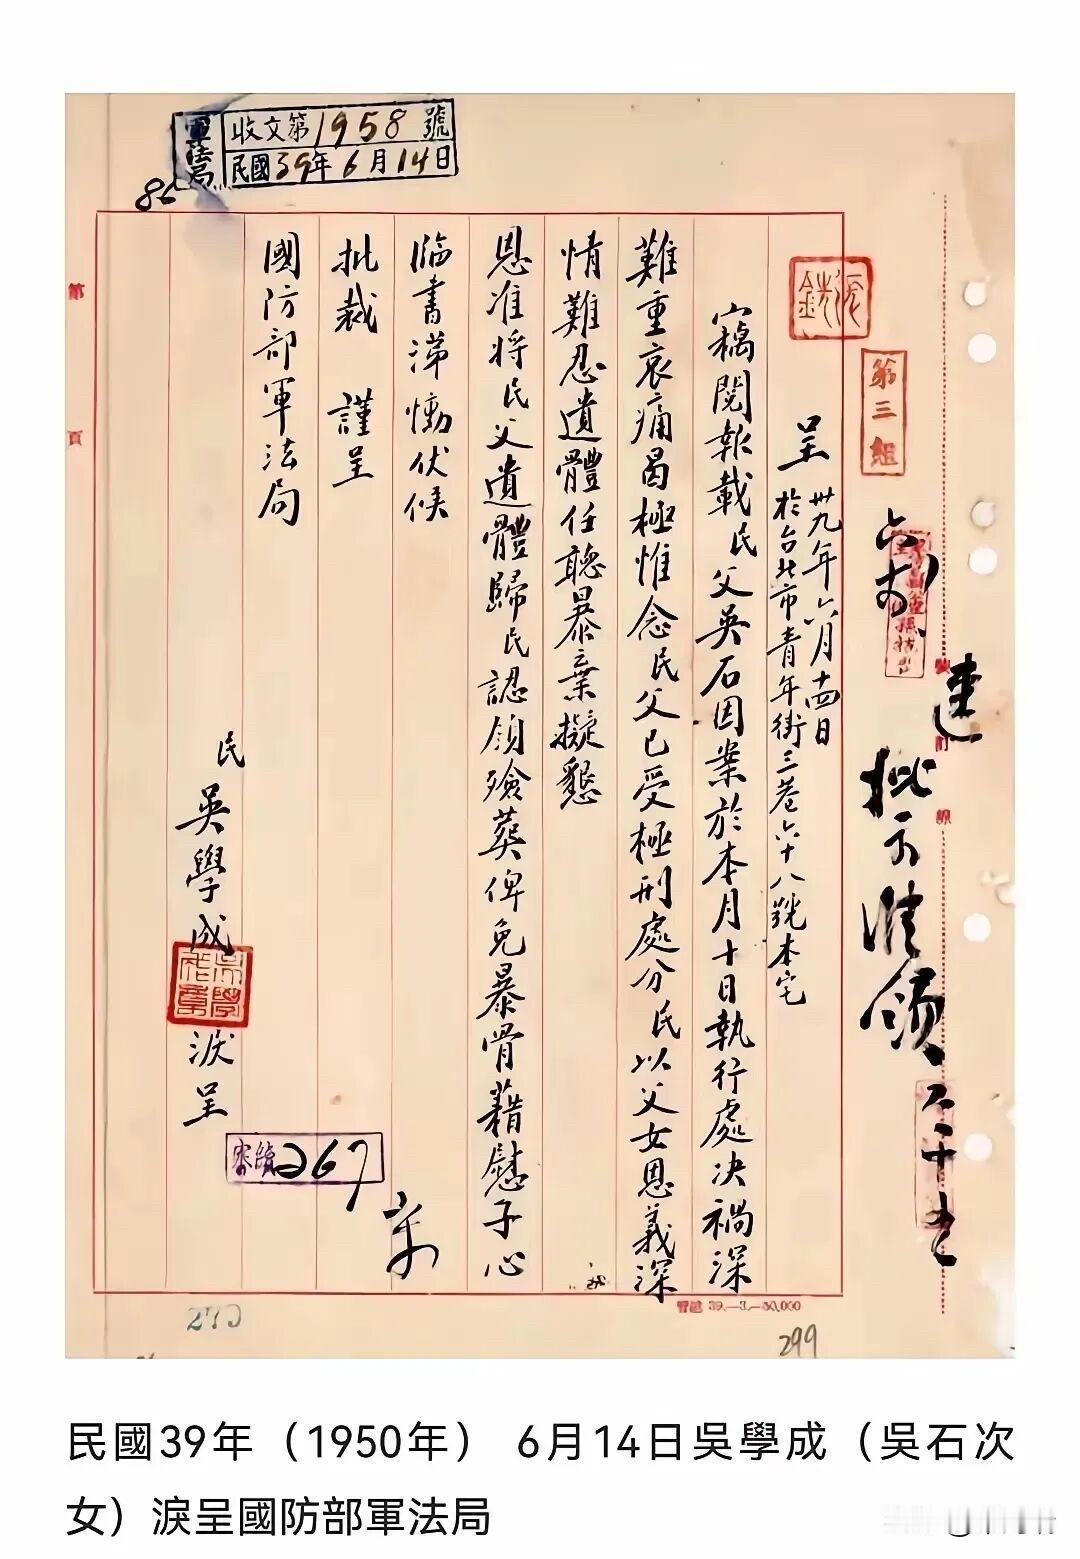 軍法局
收文第1958號
民國39年6月14日
86
第三組
呈 卅九年六月十四日
於台北市青年街三巷六十八號本宅
竊閱報載民父吳石因案於本月十日執行處決禍深
難重哀痛曷極惟念民父已受極刑處分民以父女恩義深
情難忍遺體任聽暴棄擬懇
恩准將民父遺體歸民認領殮葬俾免暴骨藉慰子心
臨書涕慟伏候
批裁 謹呈
國防部軍法局
民
吳學成 淚呈
吳學成章
267
第 頁
270
299
39.—3.—50,000
批示准領
民國39年（1950年） 6月14日吳學成（吳石次
女）淚呈國防部軍法局